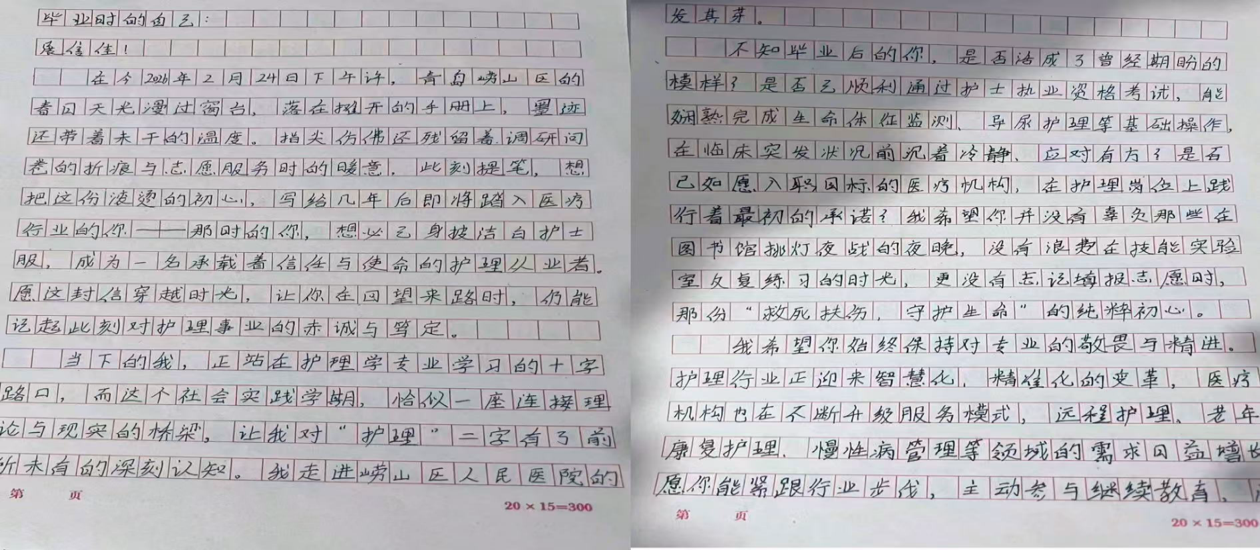 毕业时的自己:
展信佳!
在今2026年2月24日下午许,青岛崂山区的
春日天光漫过窗台,落在摊开的手册上,墨迹
还带着未干的温度。指尖仿佛还残留着调研问
卷的折痕与志愿服务时的暖意,此刻提笔,想
把这份滚烫的初心,写给几年后即将踏入医疗
行业的你——那时的你,想必已身披洁白护士
服,成为一名承载着信任与使命的护理从业者。
愿这封信穿越时光,让你在回望来路时,仍能
记起此刻对护理事业的赤诚与笃定。
当下的我,正站在护理学专业学习的十字
路口,而这个社会实践学期,恰似一座连接理
论与现实的桥梁,让我对“护理”二字有了前
所未有的深刻认知。我走进崂山区人民医院的
第 页
20×15=300
发其芽。
不知毕业后的你,是否活成了曾经期盼的
模样?是否已顺利通过护士执业资格考试,能
娴熟完成生命体征监测、导尿护理等基础操作,
在临床突发状况前沉着冷静、应对有方?是否
已如愿入职目标的医疗机构,在护理岗位上践
行着最初的承诺?我希望你并没有辜负那些在
图书馆挑灯夜战的夜晚,没有浪费在技能实验
室反复练习的时光,更没有忘记填报志愿时,
那份“救死扶伤,守护生命”的纯粹初心。
我希望你始终保持对专业的敬畏与精进。
护理行业正迎来智慧化、精准化的变革,医疗
机构也在不断升级服务模式,远程护理、老年
康复护理、慢性病管理等领域的需求日益增长
愿你能紧跟行业步伐,主动参与继续教育、
第 页
20×15=300